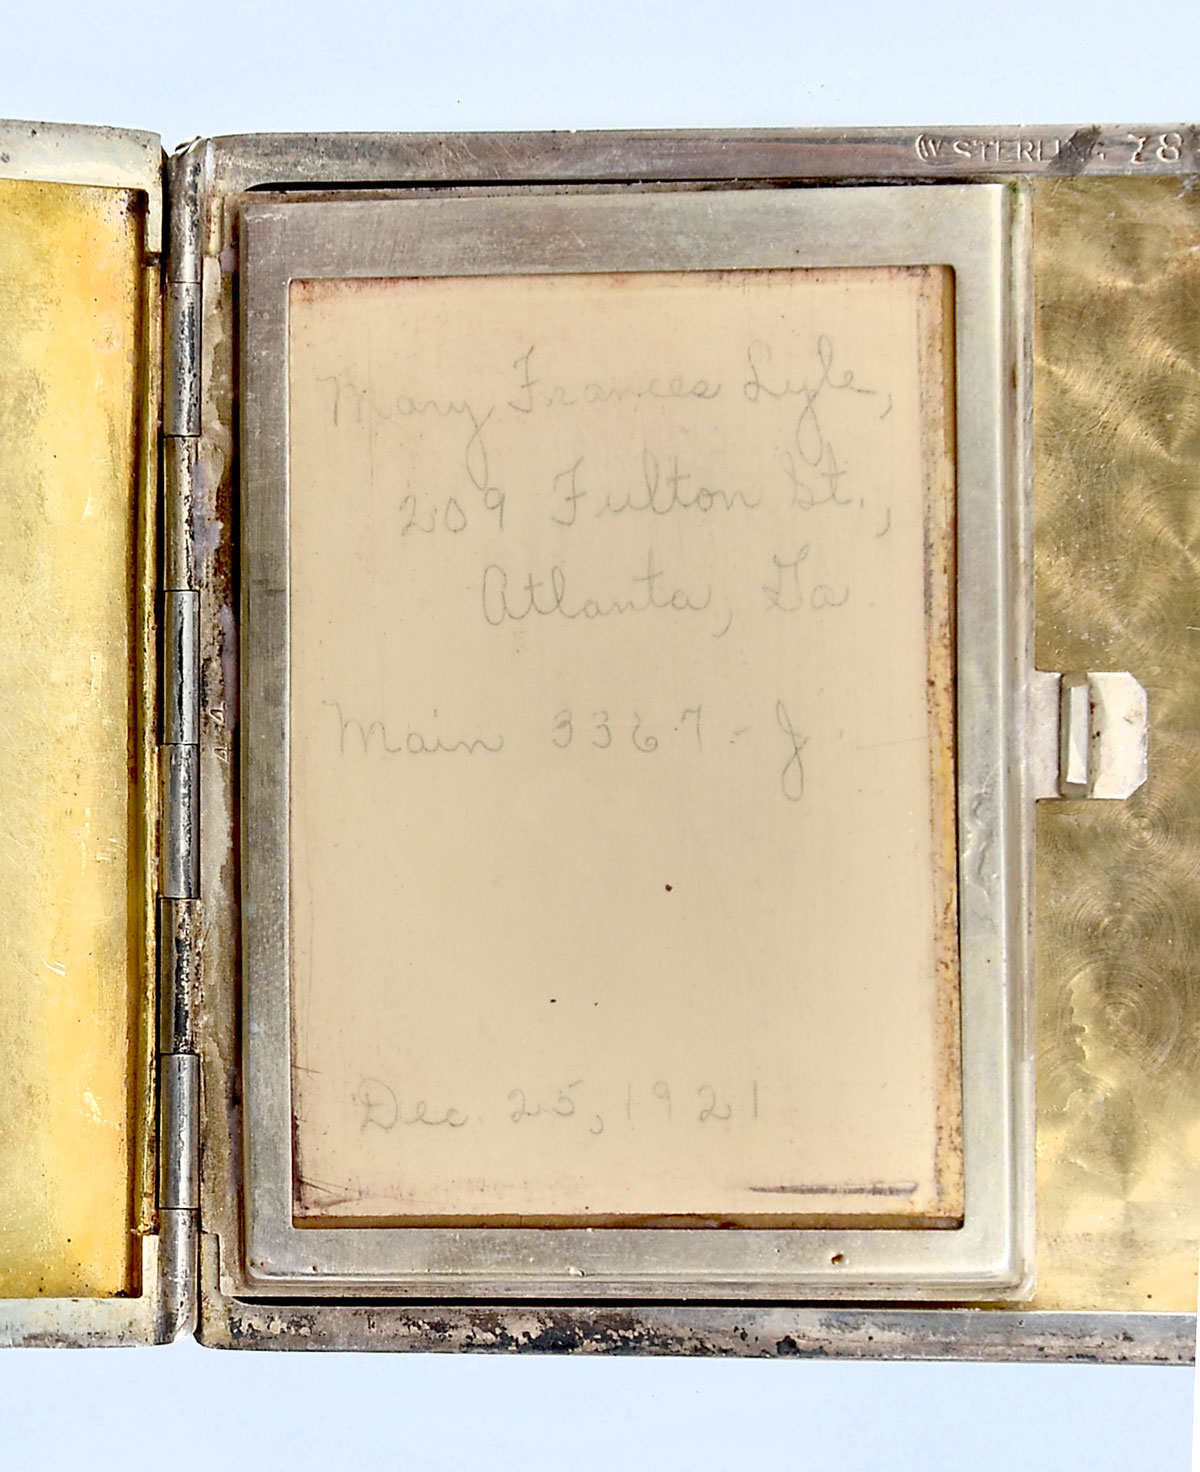 W STERLING 78
Mary Frances Lyle,
209 Fulton St.,
Atlanta, Ga
Main 3367-J.
Dec. 25, 1921